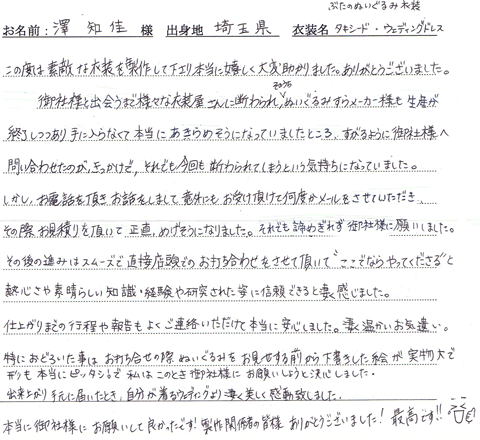 ぶたのぬいぐるみ衣装
お名前：澤 知佳 様 出身地 埼玉県 衣装名 タキシード・ウェディングドレス
この度は素敵な衣装を製作して下さり本当に嬉しく大変助かりました。ありがとうございました。
御社様と出会うまで様々な衣装屋さんに断わられ、ぬいぐるみすらメーカー様も生産が
終了しつつあり手に入らなくて本当にあきらめそうになっていましたところ、すがるように御社様へ
問い合わせたのが、きっかけで、それでも今回も断わられてしまうという気持ちになっていました。
しかし、お電話を頂きお話をしまして意外にもお受け頂けて何度かメールをさせていただき、
その際お見積りを頂いて正直、めげそうになりました。それでも諦めきれず御社様に願いしました。
その後の進みはスムーズで直接店頭でのお打ち合わせをさせて頂いて“ここでならやってくださる”と
熱心さや素晴らしい知識・経験や研究された姿に信頼できると凄く感じました。
仕上がりまでの行程や報告もよくご連絡いただけて本当に安心しました。凄く温かいお気遣い。
特におどろいた事はお打ち合せの際ぬいぐるみをお見せする前から下書きした絵が実物大で
形も本当にピッタシ！で私はこのとき御社様にお願いしようと決心しました。
出来上がり手元に届いたとき、自分が着るウェディングより凄く美しく感動致しました。
本当に御社様にお願いして良かったです！製作関係者の皆様ありがとうございました！最高です!!